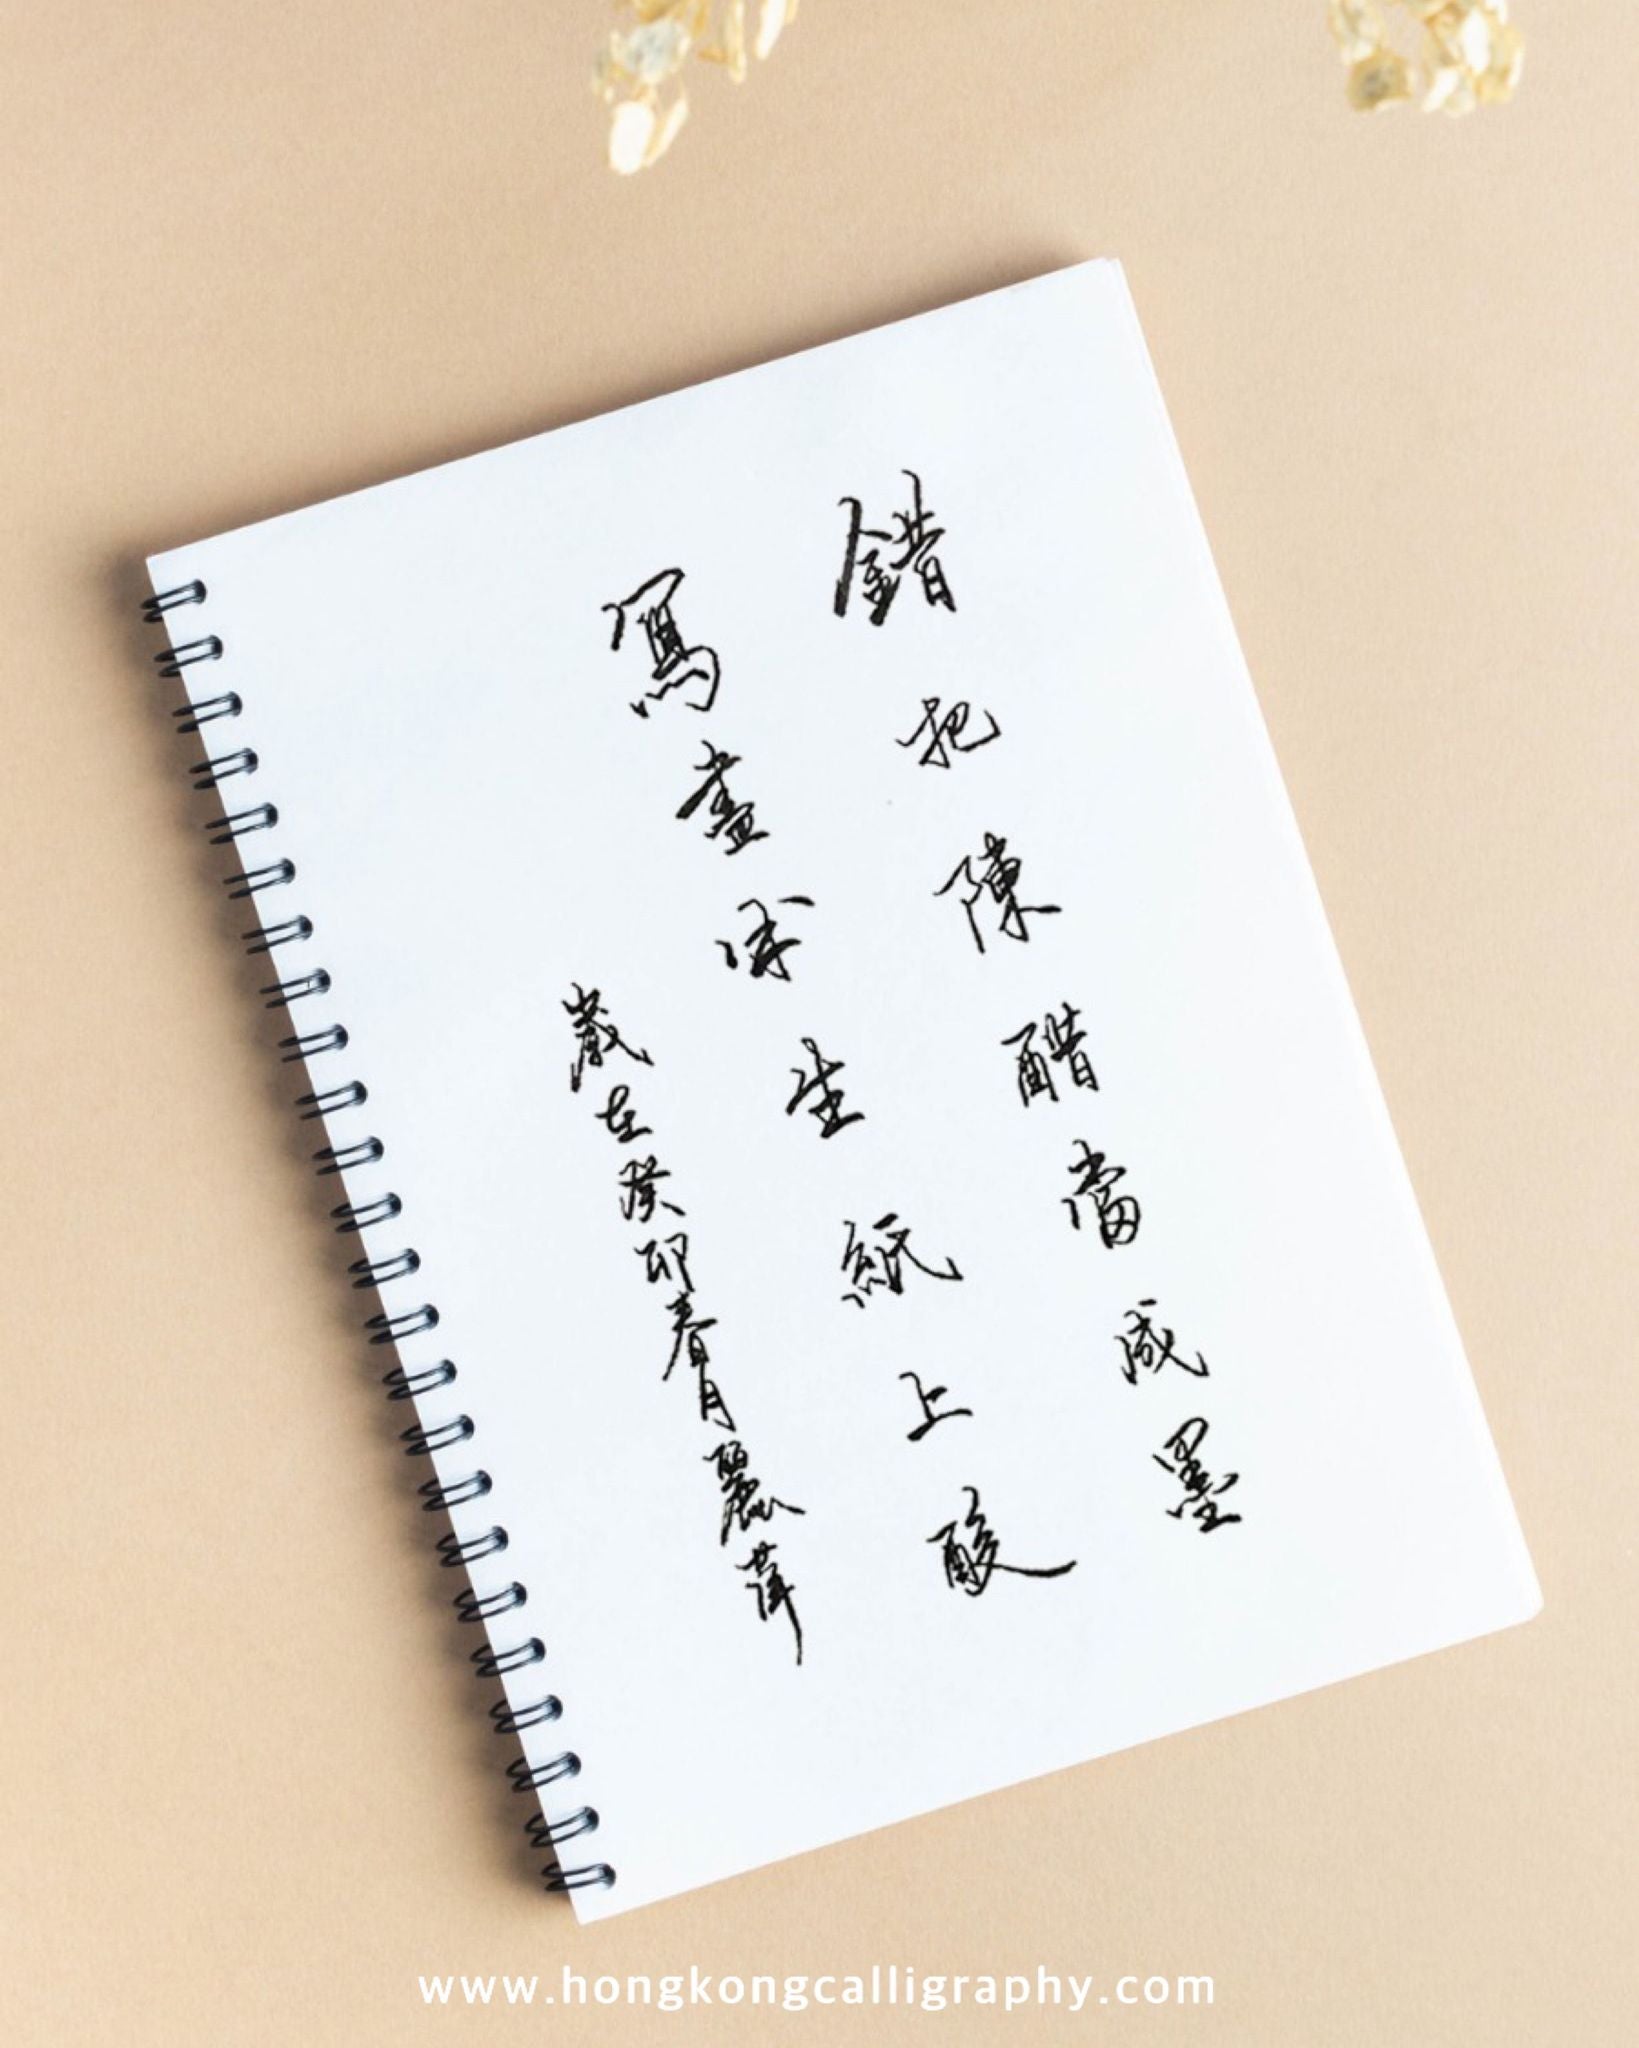 錯把陳醋當成墨
寫盡半生紙上酸
歲在癸卯春月麗萍
www.hongkongcalligraphy.com